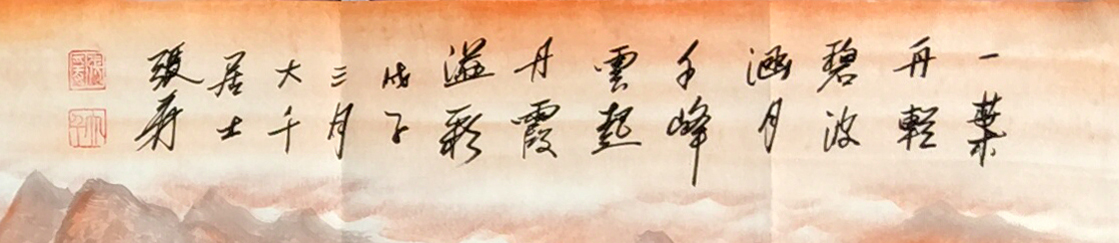 一葉
舟輕
碧波
涵月
千峰
雲起
丹霞
溢彩
戊子
三月
大千
居士
張爰